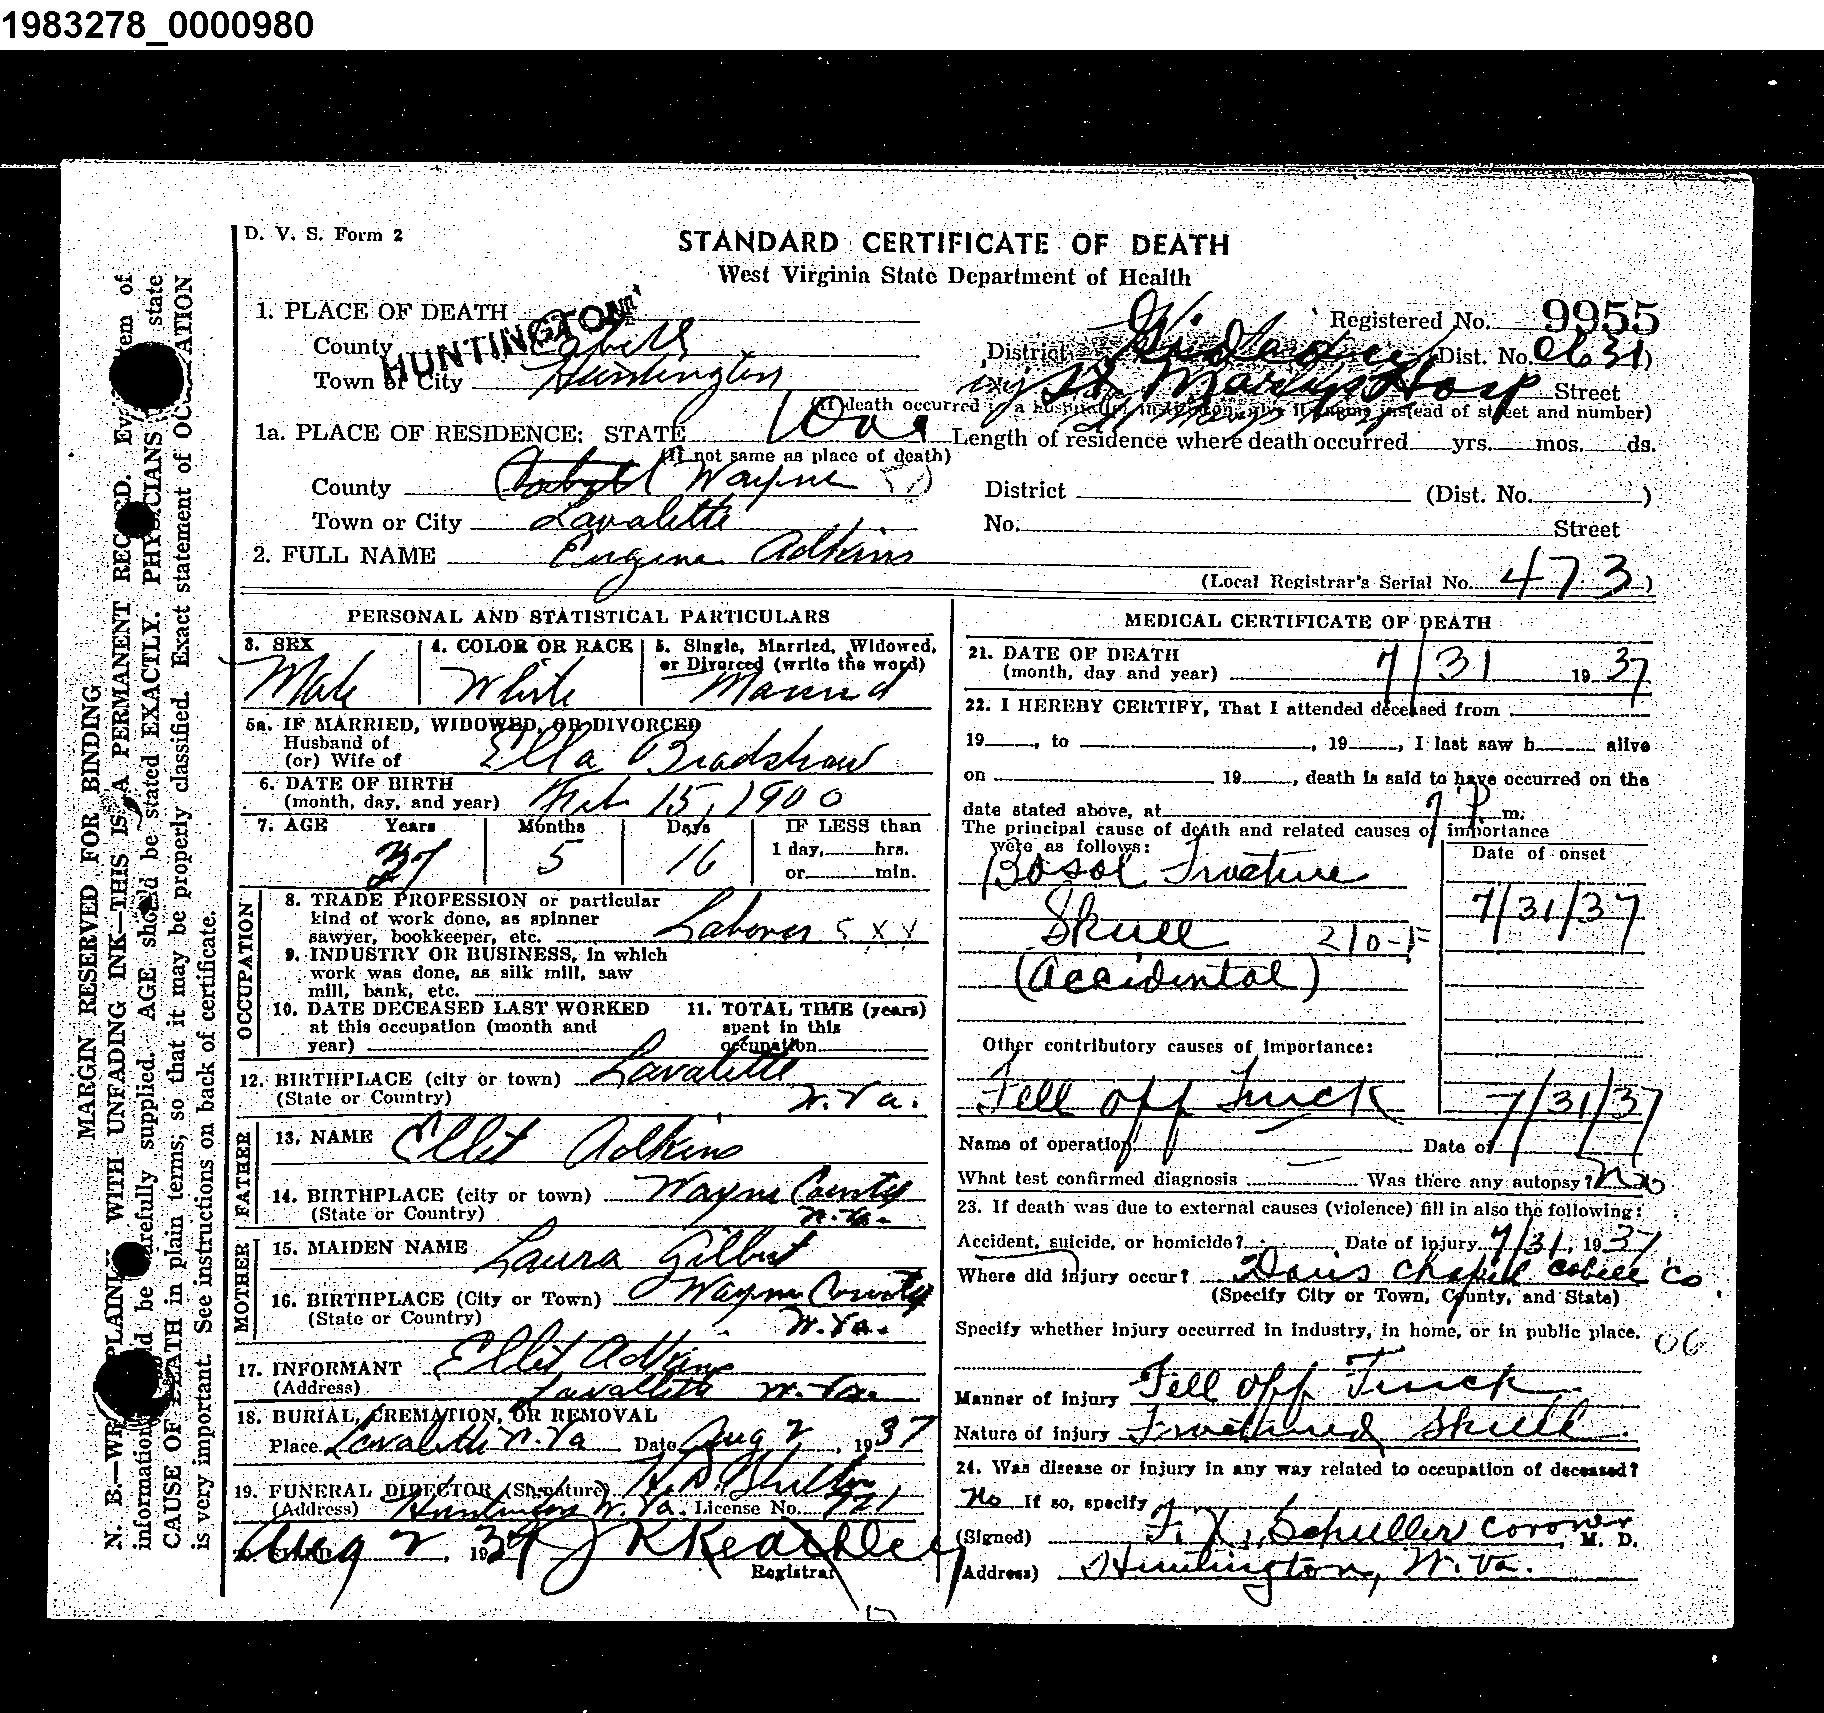 1983278_0000980
D. V. S. Form 2
STANDARD CERTIFICATE OF DEATH
West Virginia State Department of Health
1. PLACE OF DEATH
HUNTINGTON
Registered No. 9955
County Cabell
District Dist. No. 0631)
Town or City Huntington
St Marys Hosp Street
(If death occurred in a hospital or institution, give its name instead of street and number)
1a. PLACE OF RESIDENCE: STATE W Va Length of residence where death occurred yrs. mos. ds.
(If not same as place of death)
County Cabell Wayne District (Dist. No. )
Town or City Lavalette No. Street
2. FULL NAME Eugene Adkins
(Local Registrar's Serial No. 473)
PERSONAL AND STATISTICAL PARTICULARS
3. SEX Male
4. COLOR OR RACE White
5. Single, Married, Widowed, or Divorced (write the word) Married
5a. IF MARRIED, WIDOWED, OR DIVORCED
Husband of
(or) Wife of Ella Bradshaw
6. DATE OF BIRTH
(month, day, and year) Feb 15, 1900
7. AGE Years Months Days IF LESS than
37 5 16 1 day, hrs.
or min.
OCCUPATION
8. TRADE PROFESSION or particular
kind of work done, as spinner
sawyer, bookkeeper, etc. Laborer 5 X Y
9. INDUSTRY OR BUSINESS, in which
work was done, as silk mill, saw
mill, bank, etc.
10. DATE DECEASED LAST WORKED
at this occupation (month and
year)
11. TOTAL TIME (years)
spent in this
occupation
12. BIRTHPLACE (city or town) Lavalette
(State or Country) W. Va.
FATHER
13. NAME Ellit Adkins
14. BIRTHPLACE (city or town) Wayne County
(State or Country) W. Va.
MOTHER
15. MAIDEN NAME Laura Gilbert
16. BIRTHPLACE (City or Town) Wayne County
(State or Country) W. Va.
17. INFORMANT Ellit Adkins
(Address) Lavallette W. Va.
18. BURIAL, CREMATION, OR REMOVAL
Place Lavalette W. Va Date Aug 2, 1937
19. FUNERAL DIRECTOR (Signature)
(Address) Huntington W. Va. License No. 721
Aug 2, 1937 J R Keachley
Registrar
MEDICAL CERTIFICATE OF DEATH
21. DATE OF DEATH
(month, day and year) 7/31 1937
22. I HEREBY CERTIFY, That I attended deceased from
19 , to , 19 , I last saw h alive
on 19 , death is said to have occurred on the
date stated above, at 7 P. m.
The principal cause of death and related causes of importance
were as follows:
Date of onset
Basal Fracture
7/31/37
Skull 210-F
(Accidental)
Other contributory causes of importance:
Fell off Truck 7/31/37
Name of operation Date of
What test confirmed diagnosis Was there any autopsy? No
23. If death was due to external causes (violence) fill in also the following:
Accident, suicide, or homicide? Date of injury 7/31, 1937
Where did injury occur? Davis Chapel Cabell Co.
(Specify City or Town, County, and State)
Specify whether injury occurred in industry, in home, or in public place. 06
Manner of injury Fell off Truck
Nature of injury Fractured Skull
24. Was disease or injury in any way related to occupation of deceased?
No If so, specify
(Signed) F. X. Schuller Coroner M. D.
(Address) Huntington, W. Va.
MARGIN RESERVED FOR BINDING
N. B.—WRITE PLAINLY WITH UNFADING INK—THIS IS A PERMANENT RECORD. Every item of
information should be carefully supplied. AGE should be stated EXACTLY. PHYSICIANS state
CAUSE OF DEATH in plain terms, so that it may be properly classified. Exact statement of OCCUPATION
is very important. See instructions on back of certificate.